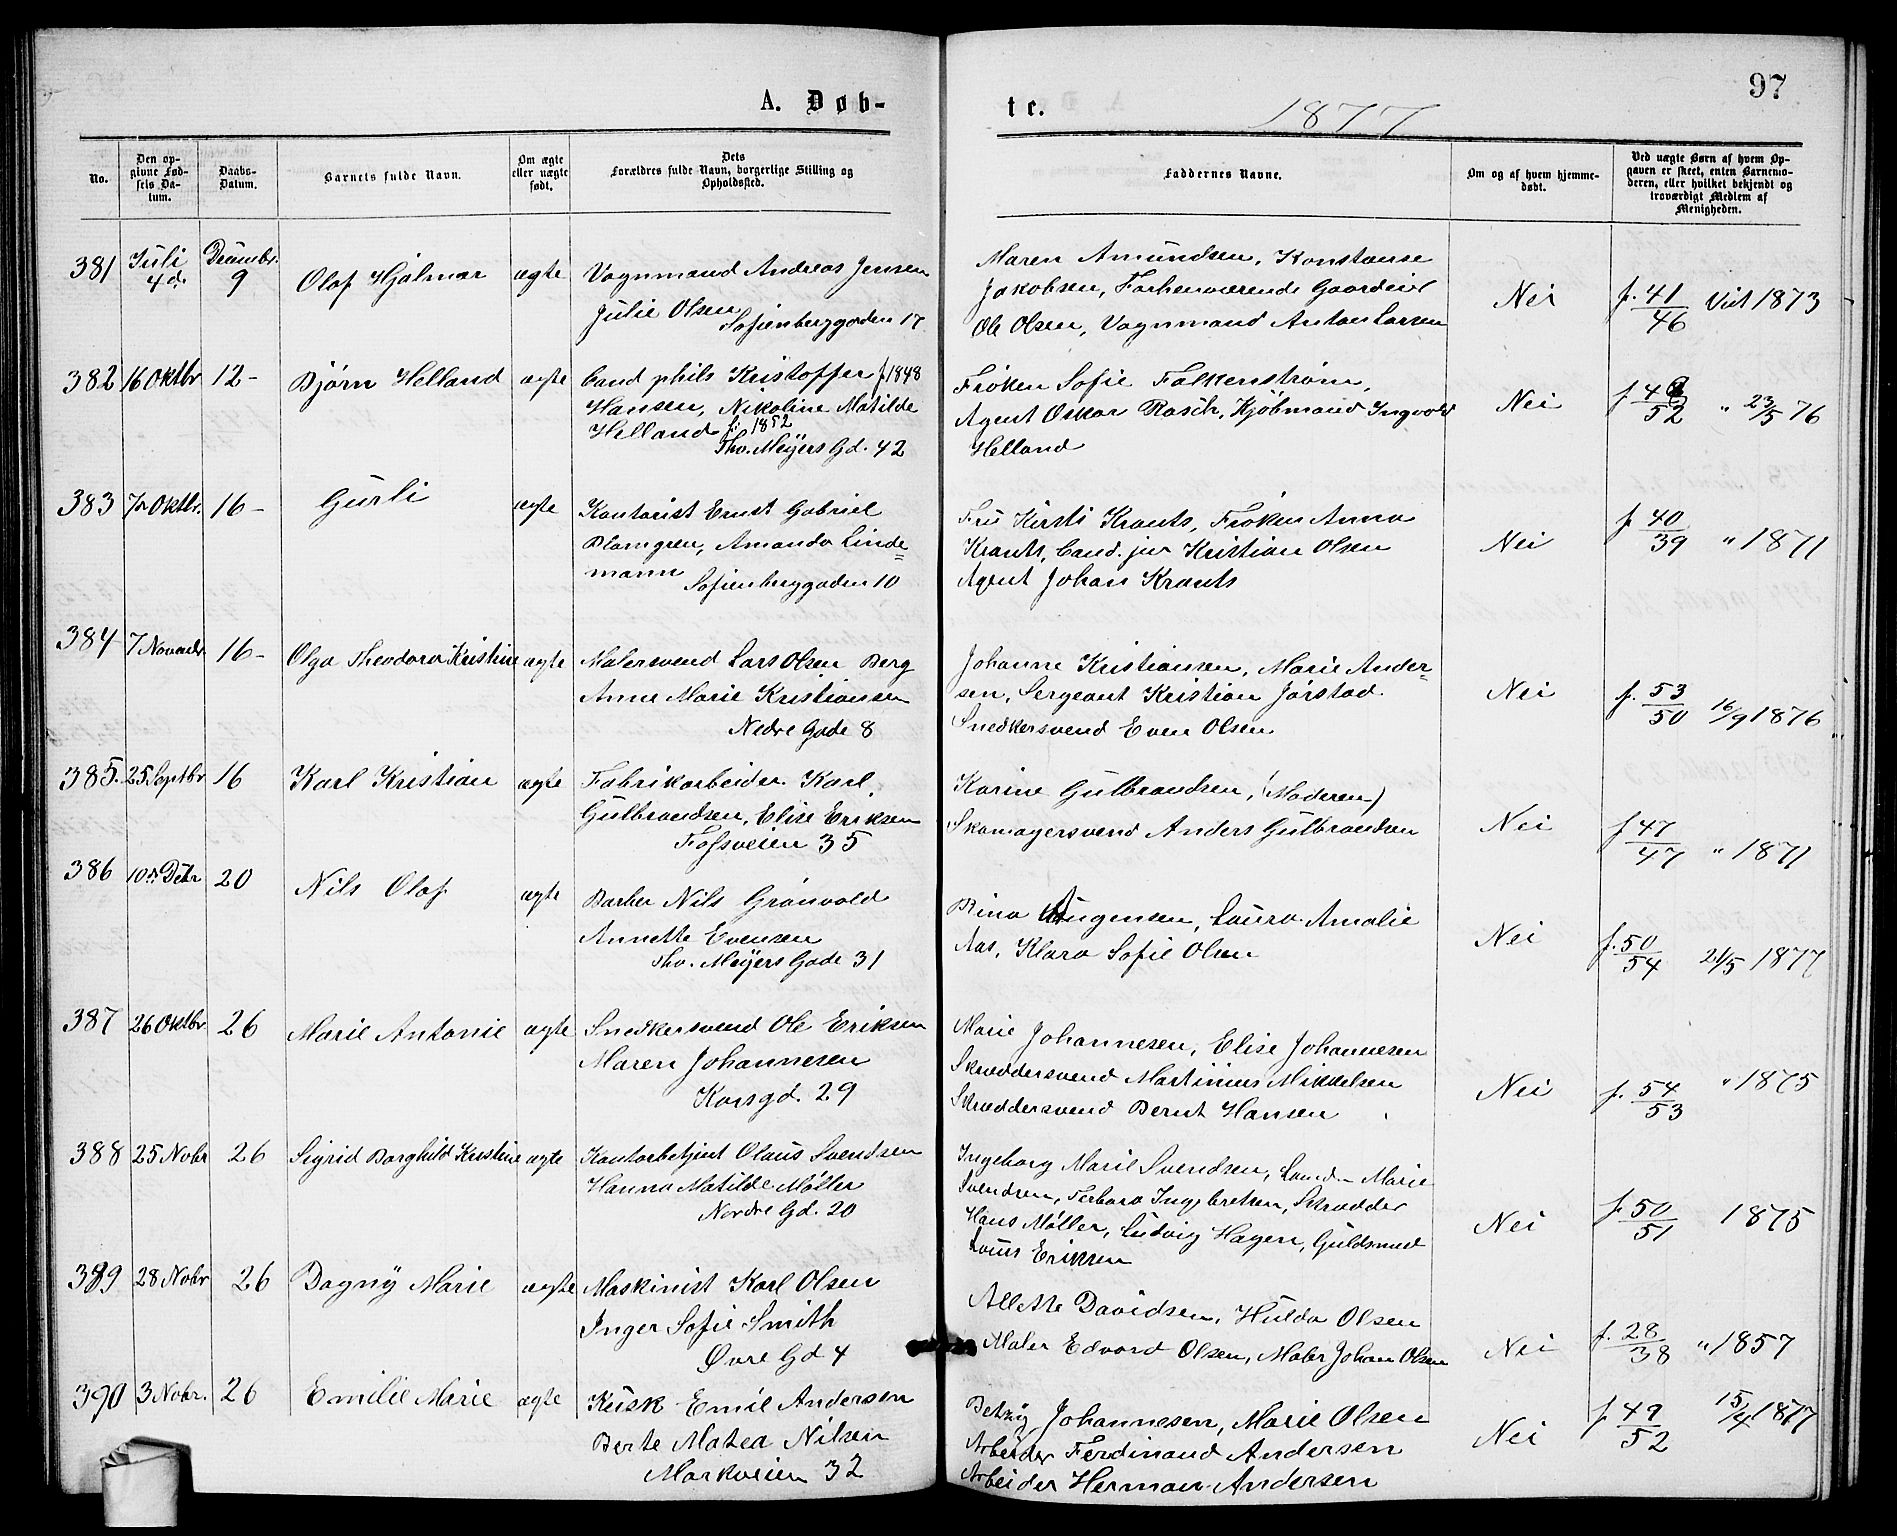 A. Døb-
te.
1877
97
No.
Den opgivne Fødsels Datum.
Daabs-Datum.
Barnets fulde Navn.
Om ægte eller uægte født.
Dets Forældres fulde Navn, borgerlige Stilling og Opholdssted.
Faddernes Navne.
Om og af hvem hjemmedøbt.
Ved uægte Børn af hvem Opgaven er skeet, enten Barnemoderen, eller hvilket bekjendt og troværdigt Medlem af Menigheden.
381 Juli 4de Decembr. 9 Olaf Hjalmar ægte Vognmand Andreas Jensen
Julie Olsen
Sofienberggaden 17
Maren Amundsen, Konstanse
Jakobsen, Forhenværende Gaardeier
Ole Olsen, Vognmand Anton Larsen
Nei
f. 41/46 Viet 1873
382 16 Oktbr 12- Bjørn Helland ægte Cand phils Kristoffer f 1848
Hansen, Nikoline Matilde
Helland f: 1852
Tho. Meyers Gd. 42
Frøken Sofie Falkenstrøm,
Agent Oskar Rasch, Kjøbmand Ingvald
Helland
Nei
f 48/52 " 23/5 76
383 7de Oktbr. 16- Gurli ægte Kontorist Ernst Gabriel
Blomgren, Amanda Linde=
mann
Sofienberggaden 10
Fru Kirsti Krants, Frøken Anna
Krants, Cand. jur Kristian Olsen
Agent Johan Krants
Nei
f 40/39 " 1871
384 7 Novembr 16- Olga Theodora Kristine ægte Malersvend Lars Olsen Berg
Anne Marie Kristiansen
Nedre Gade 8
Johanne Kristiansen, Marie Ander=
sen, Sergeant Kristian Jørstad
Snedkersvend Even Olsen
Nei
f. 53/50 16/9 1876
385. 25 Septbr 16 Karl Kristian ægte Fabrikarbeider Karl
Gulbrandsen, Elise Eriksen
Fossveien 35
Karine Gulbrandsen, (Moderen)
Skomagersvend Anders Gulbrandsen
Nei
f 47/47 " 1871
386 10de Debr 20 Nils Olaf ægte Barber Nils Grønvold
Annette Evensen
Tho. Meyers Gade 31
Rina Augensen, Laura Amalie
Aas, Klara Sofie Olsen
Nei
f. 50/54 21/5 1877
387 26 Oktbr 26 Marie Antonie ægte Snedkersvend Ole Eriksen
Maren Johannesen
Korsgd. 29
Marie Johannesen, Elise Johannesen
Skræddersvend Martinius Mikkelsen
Skræddersvend Bernt Hansen
Nei
f. 54/53 " 1875
388 25 Nobr 26 Sigrid Borghild Kristine ægte Kontorbetjent Olaus Svendsen
Hanna Matilde Møller
Nordre Gd. 20
Ingeborg Marie Svendsen, Marie
Svendsen, Ingebretsen, Skrædder
Hans Møller, Ludvig Hagen, Guldsmed
Louis Eriksen
Nei
f. 50/51 1875
389 28 Nobr 26 Dagny Marie ægte Maskinist Karl Olsen
Inger Sofie Smith
Øvre Gd 4
Allette Davidsen, Hulda Olsen
Maler Edvard Olsen, Maler Johan Olsen
Nei
f. 28/38 " 1857
390 3 Nobr. 26 Emilie Marie ægte Kusk Emil Andersen
Berte Matea Nilsen
Markveien 32
Betzy Johannesen, Marie Olsen
Arbeider Ferdinand Andersen
Arbeider Herman Andersen
Nei
f 49/52 15/4 1877